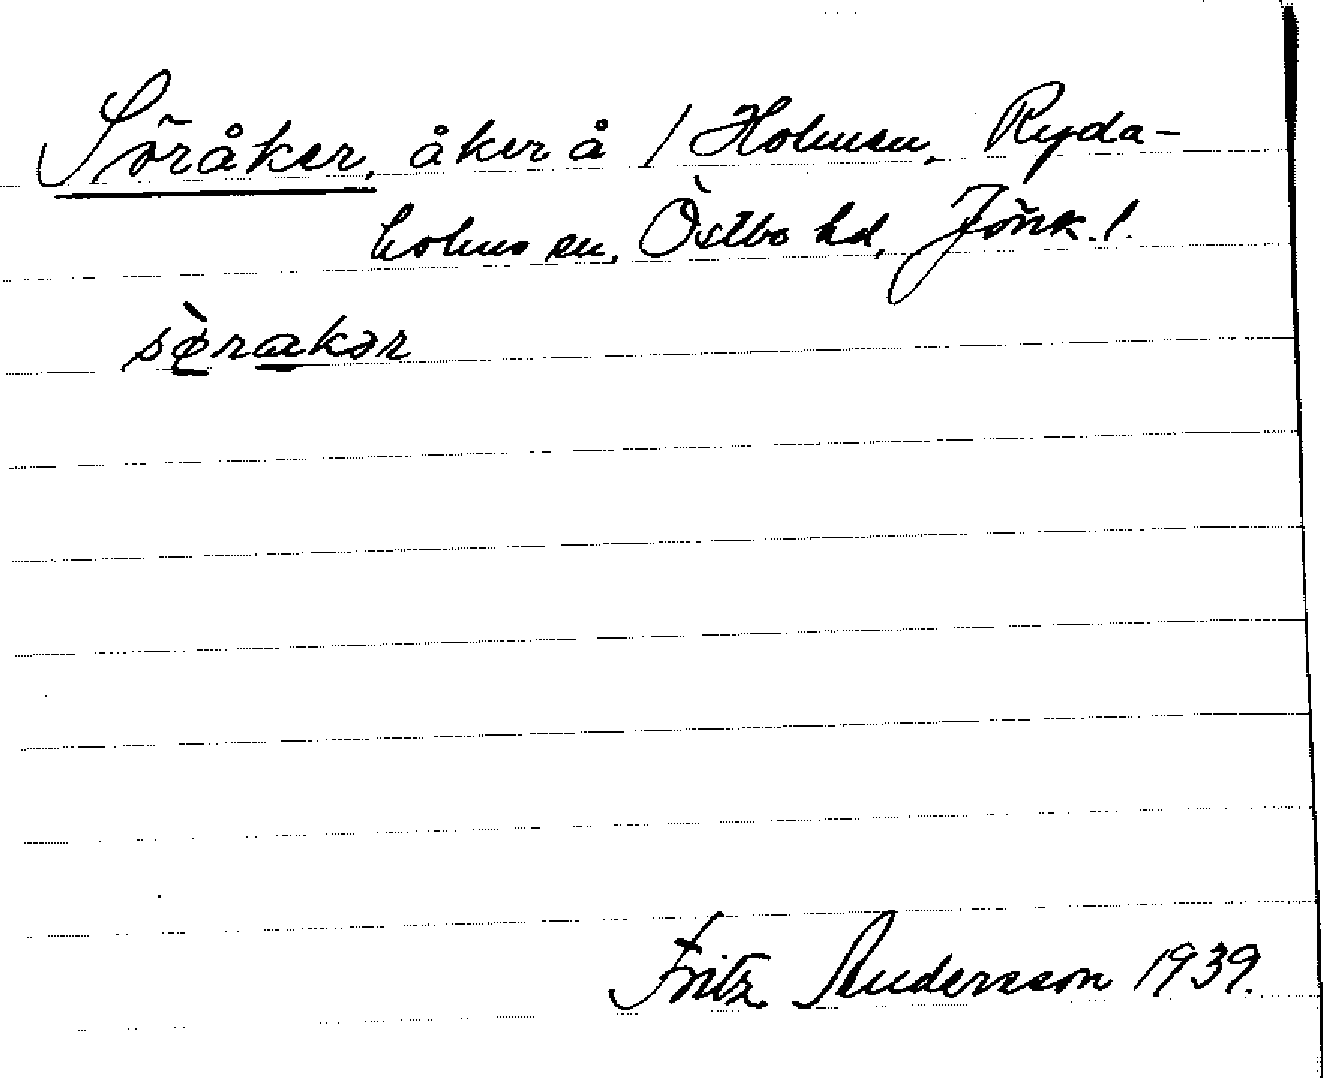 Söråker, åker å 1 Holmen, Ryda-
holms sn, Östbo hd, Jönk. l.
sø̀rakər
Fritz Andersson 1939.